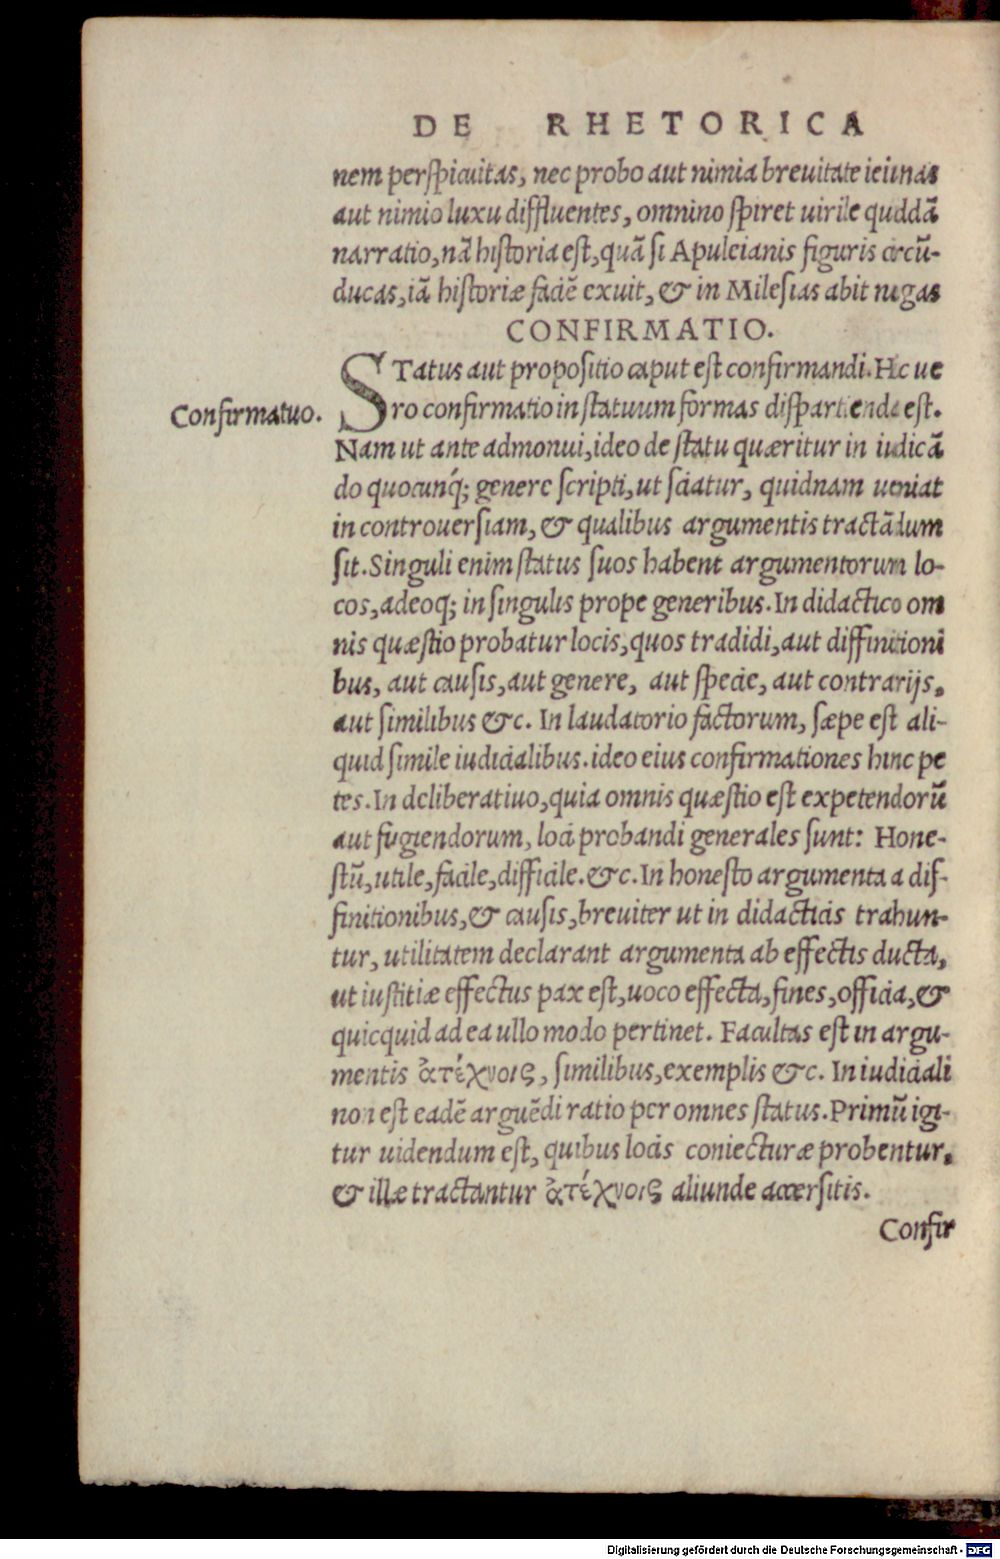 DE RHETORICA
nem perspicuitas, nec probo aut nimia breuitate ieiunas
aut nimio luxu diffluentes, omnino spiret uirile quddã
narratio, nã historia est, quã si Apuleianis figuris circũ-
ducas, iã historiæ faciẽ exuit, & in Milesias abit nugas
CONFIRMATIO.
STatus aut propositio caput est confirmandi. Hic ue
Confirmatuo.
ro confirmatio in statuum formas dispartienda est.
Nam ut ante admonui, ideo de statu quæritur in iudicã
do quocunq́; genere scripti, ut sciatur, quidnam ueniat
in controuersiam, & qualibus argumentis tractãdum
sit. Singuli enim status suos habent argumentorum lo-
cos, adeoq; in singulis prope generibus. In didactico om
nis quæstio probatur locis, quos tradidi, aut diffinitioni
bus, aut causis, aut genere, aut specie, aut contrarijs,
aut similibus &c. In laudatorio factorum, sæpe est ali-
quid simile iudicialibus. ideo eius confirmationes hinc pe
tes. In deliberatiuo, quia omnis quæstio est expetendorũ
aut fugiendorum, loci probandi generales sunt: Hone-
stũ, utile, facile, difficile. &c. In honesto argumenta a dif-
finitionibus, & causis, breuiter ut in didacticis trahun-
tur, utilitatem declarant argumenta ab effectis ducta,
ut iustitiæ effectus pax est, uoco effecta, fines, officia, &
quicquid ad ea ullo modo pertinet. Facultas est in argu-
mentis ἀτέχνοις, similibus, exemplis &c. In iudiciali
non est eadẽ arguẽdi ratio per omnes status. Primũ igi-
tur uidendum est, quibus locis coniecturæ probentur,
& illæ tractantur ἀτέχνοις aliunde accersitis.
Confir
Digitalisierung gefördert durch die Deutsche Forschungsgemeinschaft - DFG